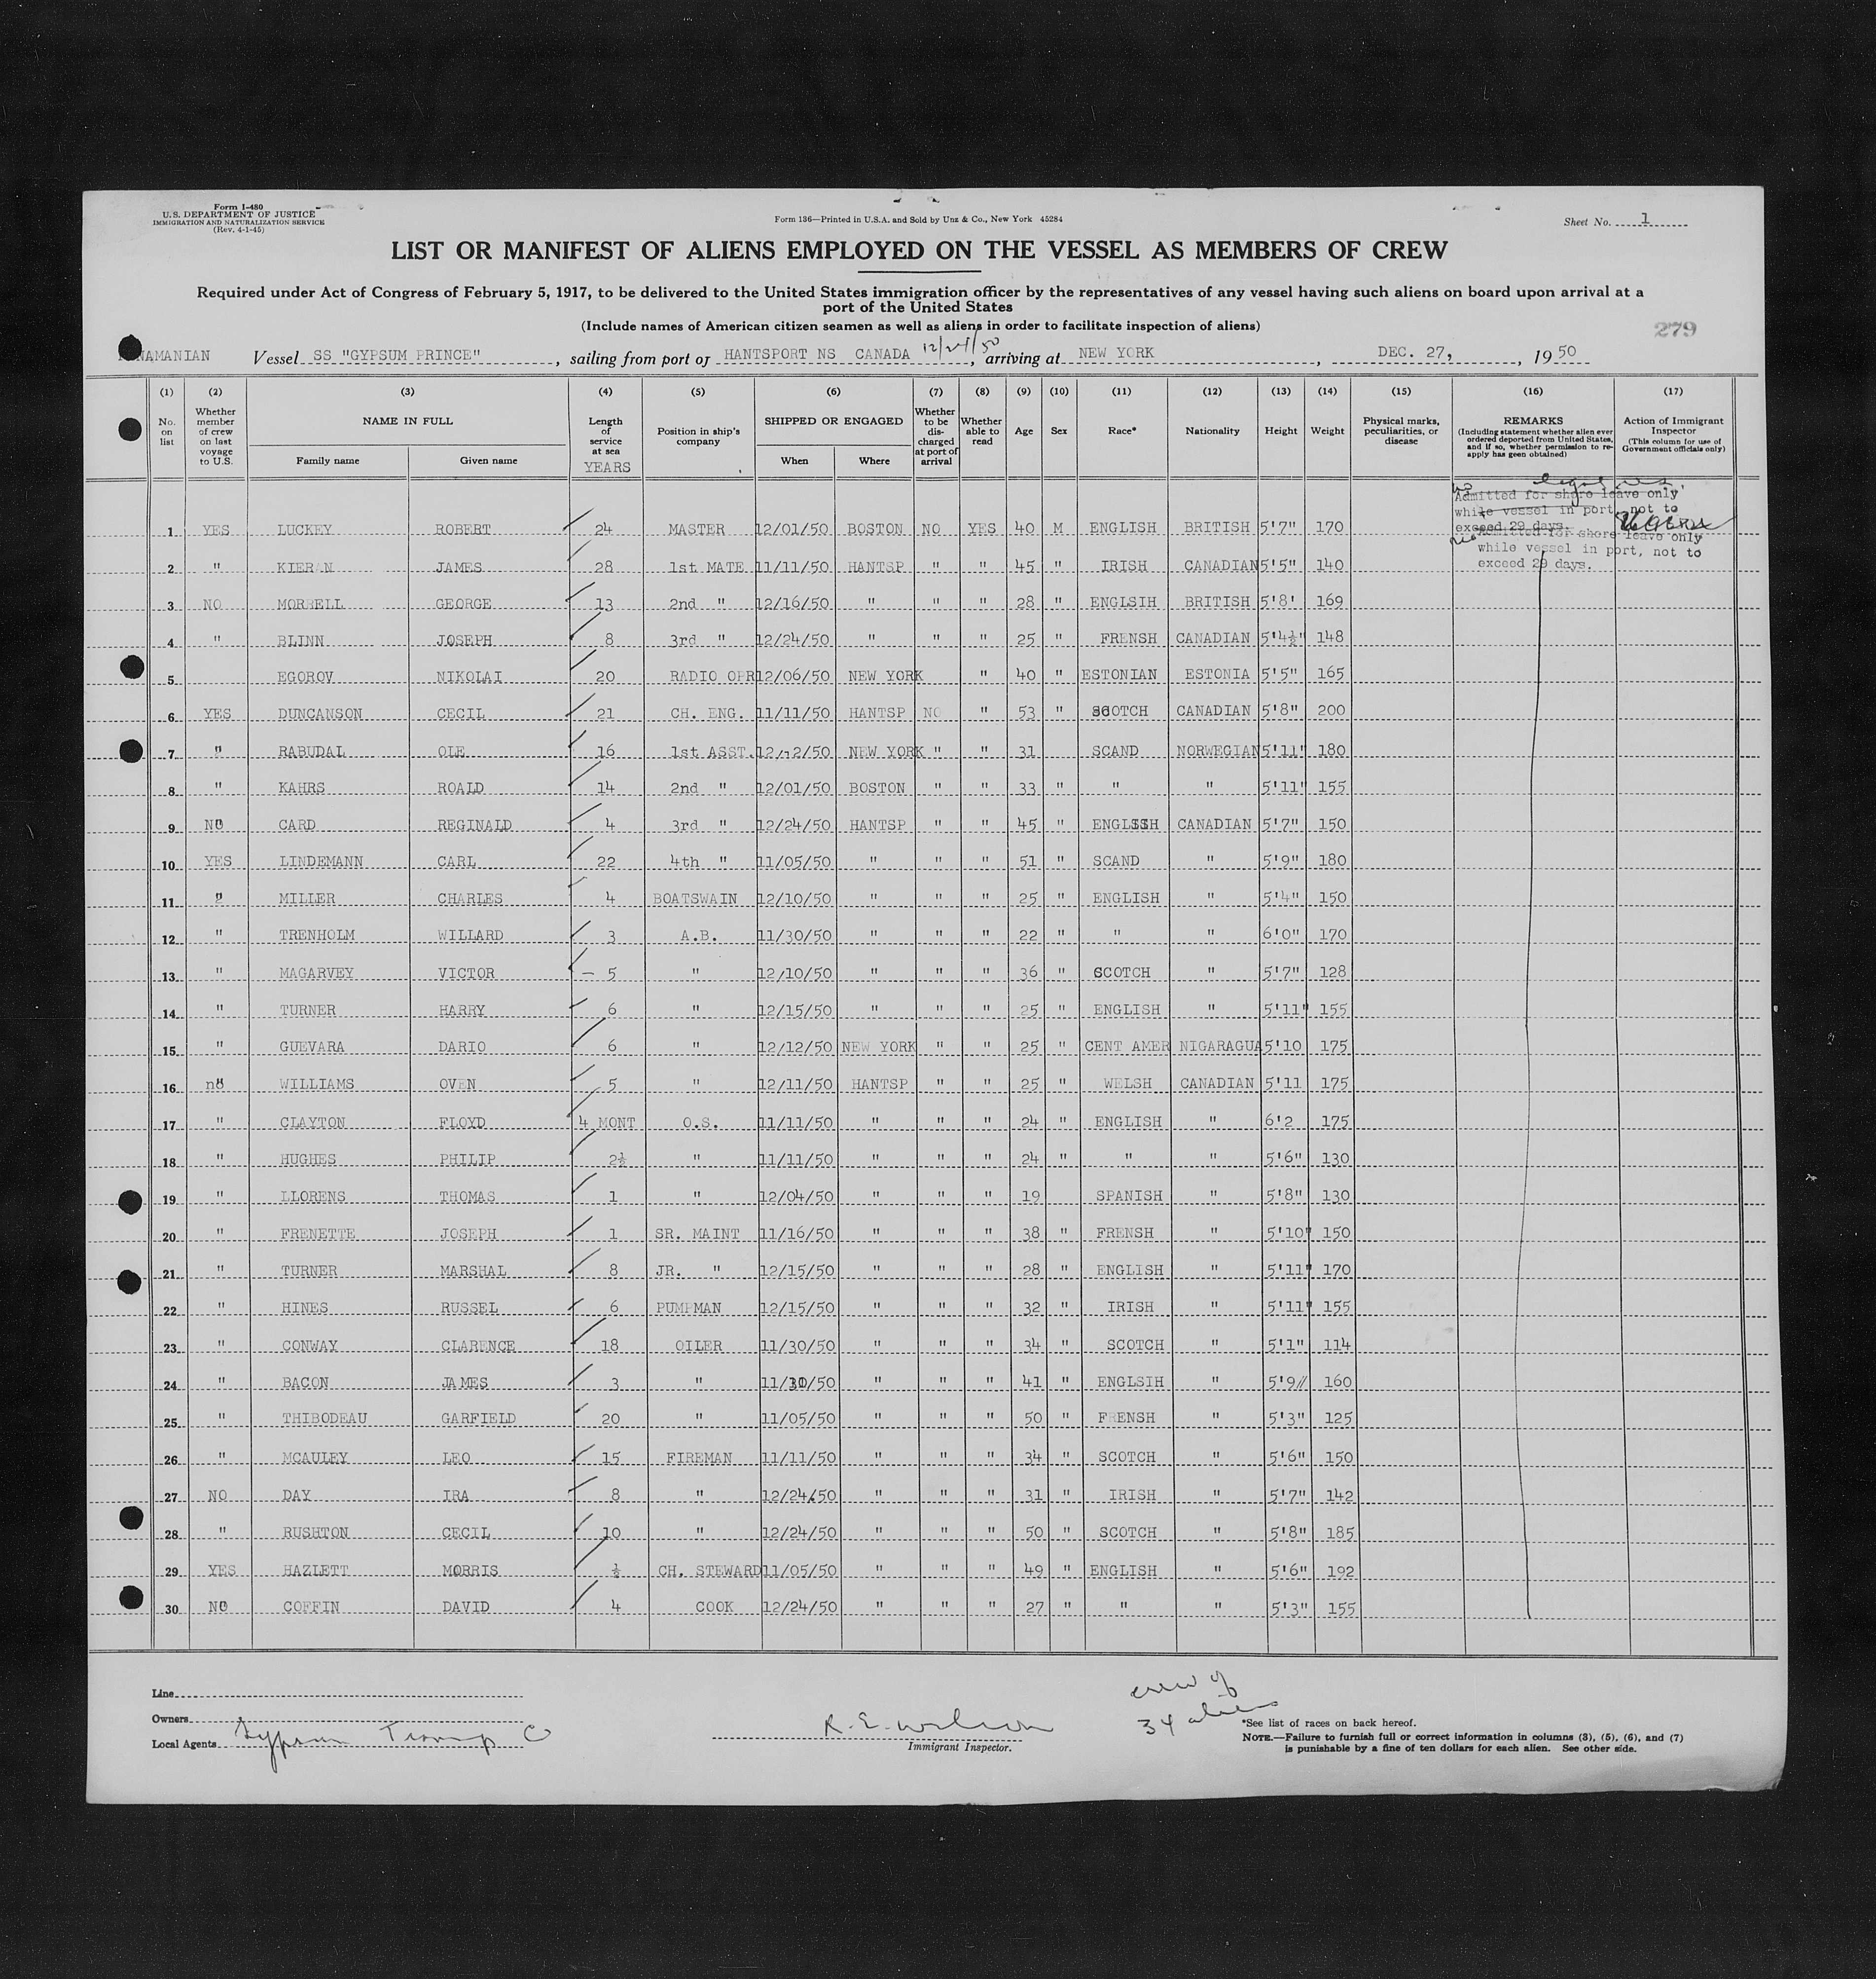 Form I-480
U.S. DEPARTMENT OF JUSTICE
IMMIGRATION AND NATURALIZATION SERVICE
(Rev. 4-1-45)
Form 136—Printed in U.S.A. and Sold by Unz & Co., New York 45284
Sheet No. 1
LIST OR MANIFEST OF ALIENS EMPLOYED ON THE VESSEL AS MEMBERS OF CREW
Required under Act of Congress of February 5, 1917, to be delivered to the United States immigration officer by the representatives of any vessel having such aliens on board upon arrival at a
port of the United States
(Include names of American citizen seamen as well as aliens in order to facilitate inspection of aliens)
279
NAMANIAN Vessel SS "GYPSUM PRINCE", sailing from port of HANTSPORT NS CANADA 12/24/50, arriving at NEW YORK, DEC. 27,, 1950
(1) (2) (3) (4) (5) (6) (7) (8) (9) (10) (11) (12) (13) (14) (15) (16) (17)
No. on list
Whether member of crew on last voyage to U.S.
NAME IN FULL
Family name Given name
Length of service at sea YEARS
Position in ship's company
SHIPPED OR ENGAGED
When Where
Whether to be discharged at port of arrival
Whether able to read
Age
Sex
Race*
Nationality
Height
Weight
Physical marks, peculiarities, or disease
REMARKS
(Including statement whether alien ever ordered deported from United States, and if so, whether permission to re-apply has geen obtained)
Action of Immigrant Inspector
(This column for use of Government officials only)
Admitted for shore leave only
while vessel in port, not to
exceed 29 days.
Admitted for shore leave only
while vessel in port, not to
exceed 29 days.
1 YES LUCKEY ROBERT 24 MASTER 12/01/50 BOSTON NO YES 40 M ENGLISH BRITISH 5'7" 170
2 " KIERAN JAMES 28 1st MATE 11/11/50 HANTSP " " 45 " IRISH CANADIAN 5'5" 140
3 NO MORRELL GEORGE 13 2nd " 12/16/50 " " " 28 " ENGLSIH BRITISH 5'8' 169
4 " BLINN JOSEPH 8 3rd " 12/24/50 " " " 25 " FRENSH CANADIAN 5'4½" 148
5 EGOROV NIKOLAI 20 RADIO OPR 12/06/50 NEW YORK " 40 " ESTONIAN ESTONIA 5'5" 165
6 YES DUNCANSON CECIL 21 CH. ENG. 11/11/50 HANTSP NO " 53 " SCOTCH CANADIAN 5'8" 200
7 " RABUDAL OLE 16 1st ASST. 12/12/50 NEW YORK " " 31 SCAND NORWEGIAN 5'11" 180
8 " KAHRS ROALD 14 2nd " 12/01/50 BOSTON " " 33 " " " 5'11" 155
9 NO CARD REGINALD 4 3rd " 12/24/50 HANTSP " " 45 " ENGLISH CANADIAN 5'7" 150
10 YES LINDEMANN CARL 22 4th " 11/05/50 " " " 51 " SCAND " 5'9" 180
11 " MILLER CHARLES 4 BOATSWAIN 12/10/50 " " " 25 " ENGLISH " 5'4" 150
12 " TRENHOLM WILLARD 3 A.B. 11/30/50 " " " 22 " " " 6'0" 170
13 " MAGARVEY VICTOR 5 " 12/10/50 " " " 36 " SCOTCH " 5'7" 128
14 " TURNER HARRY 6 " 12/15/50 " " " 25 " ENGLISH " 5'11" 155
15 " GUEVARA DARIO 6 " 12/12/50 NEW YORK " " 25 " CENT AMER NIGARAGUA 5'10 175
16 no WILLIAMS OVEN 5 " 12/11/50 HANTSP " " 25 " WELSH CANADIAN 5'11 175
17 " CLAYTON FLOYD 4 MONT O.S. 11/11/50 " " " 24 " ENGLISH " 6'2 175
18 " HUGHES PHILIP 2½ " 11/11/50 " " " 24 " " " 5'6" 130
19 " LLORENS THOMAS 1 " 12/04/50 " " " 19 SPANISH " 5'8" 130
20 " FRENETTE JOSEPH 1 SR. MAINT 11/16/50 " " " 38 " FRENSH " 5'10" 150
21 " TURNER MARSHAL 8 JR. " 12/15/50 " " " 28 " ENGLISH " 5'11" 170
22 " HINES RUSSEL 6 PUMPMAN 12/15/50 " " " 32 " IRISH " 5'11" 155
23 " CONWAY CLARENCE 18 OILER 11/30/50 " " " 34 " SCOTCH " 5'1" 114
24 " BACON JAMES 3 " 11/30/50 " " " 41 " ENGLSIH " 5'9" 160
25 " THIBODEAU GARFIELD 20 " 11/05/50 " " " 50 " FRENSH " 5'3" 125
26 " MCAULEY LEO 15 FIREMAN 11/11/50 " " " 34 " SCOTCH " 5'6" 150
27 NO DAY IRA 8 " 12/24/50 " " " 31 " IRISH " 5'7" 142
28 " RUSHTON CECIL 10 " 12/24/50 " " " 50 " SCOTCH " 5'8" 185
29 YES HAZLETT MORRIS ½ CH. STEWARD 11/05/50 " " " 49 " ENGLISH " 5'6" 192
30 NO COFFIN DAVID 4 COOK 12/24/50 " " " 27 " " " 5'3" 155
Line
Owners
Local Agents Gypsum Transp Co
R. E. Wilson
Immigrant Inspector.
crew of
34 aliens
*See list of races on back hereof.
NOTE.—Failure to furnish full or correct information in columns (3), (5), (6), and (7)
is punishable by a fine of ten dollars for each alien. See other side.